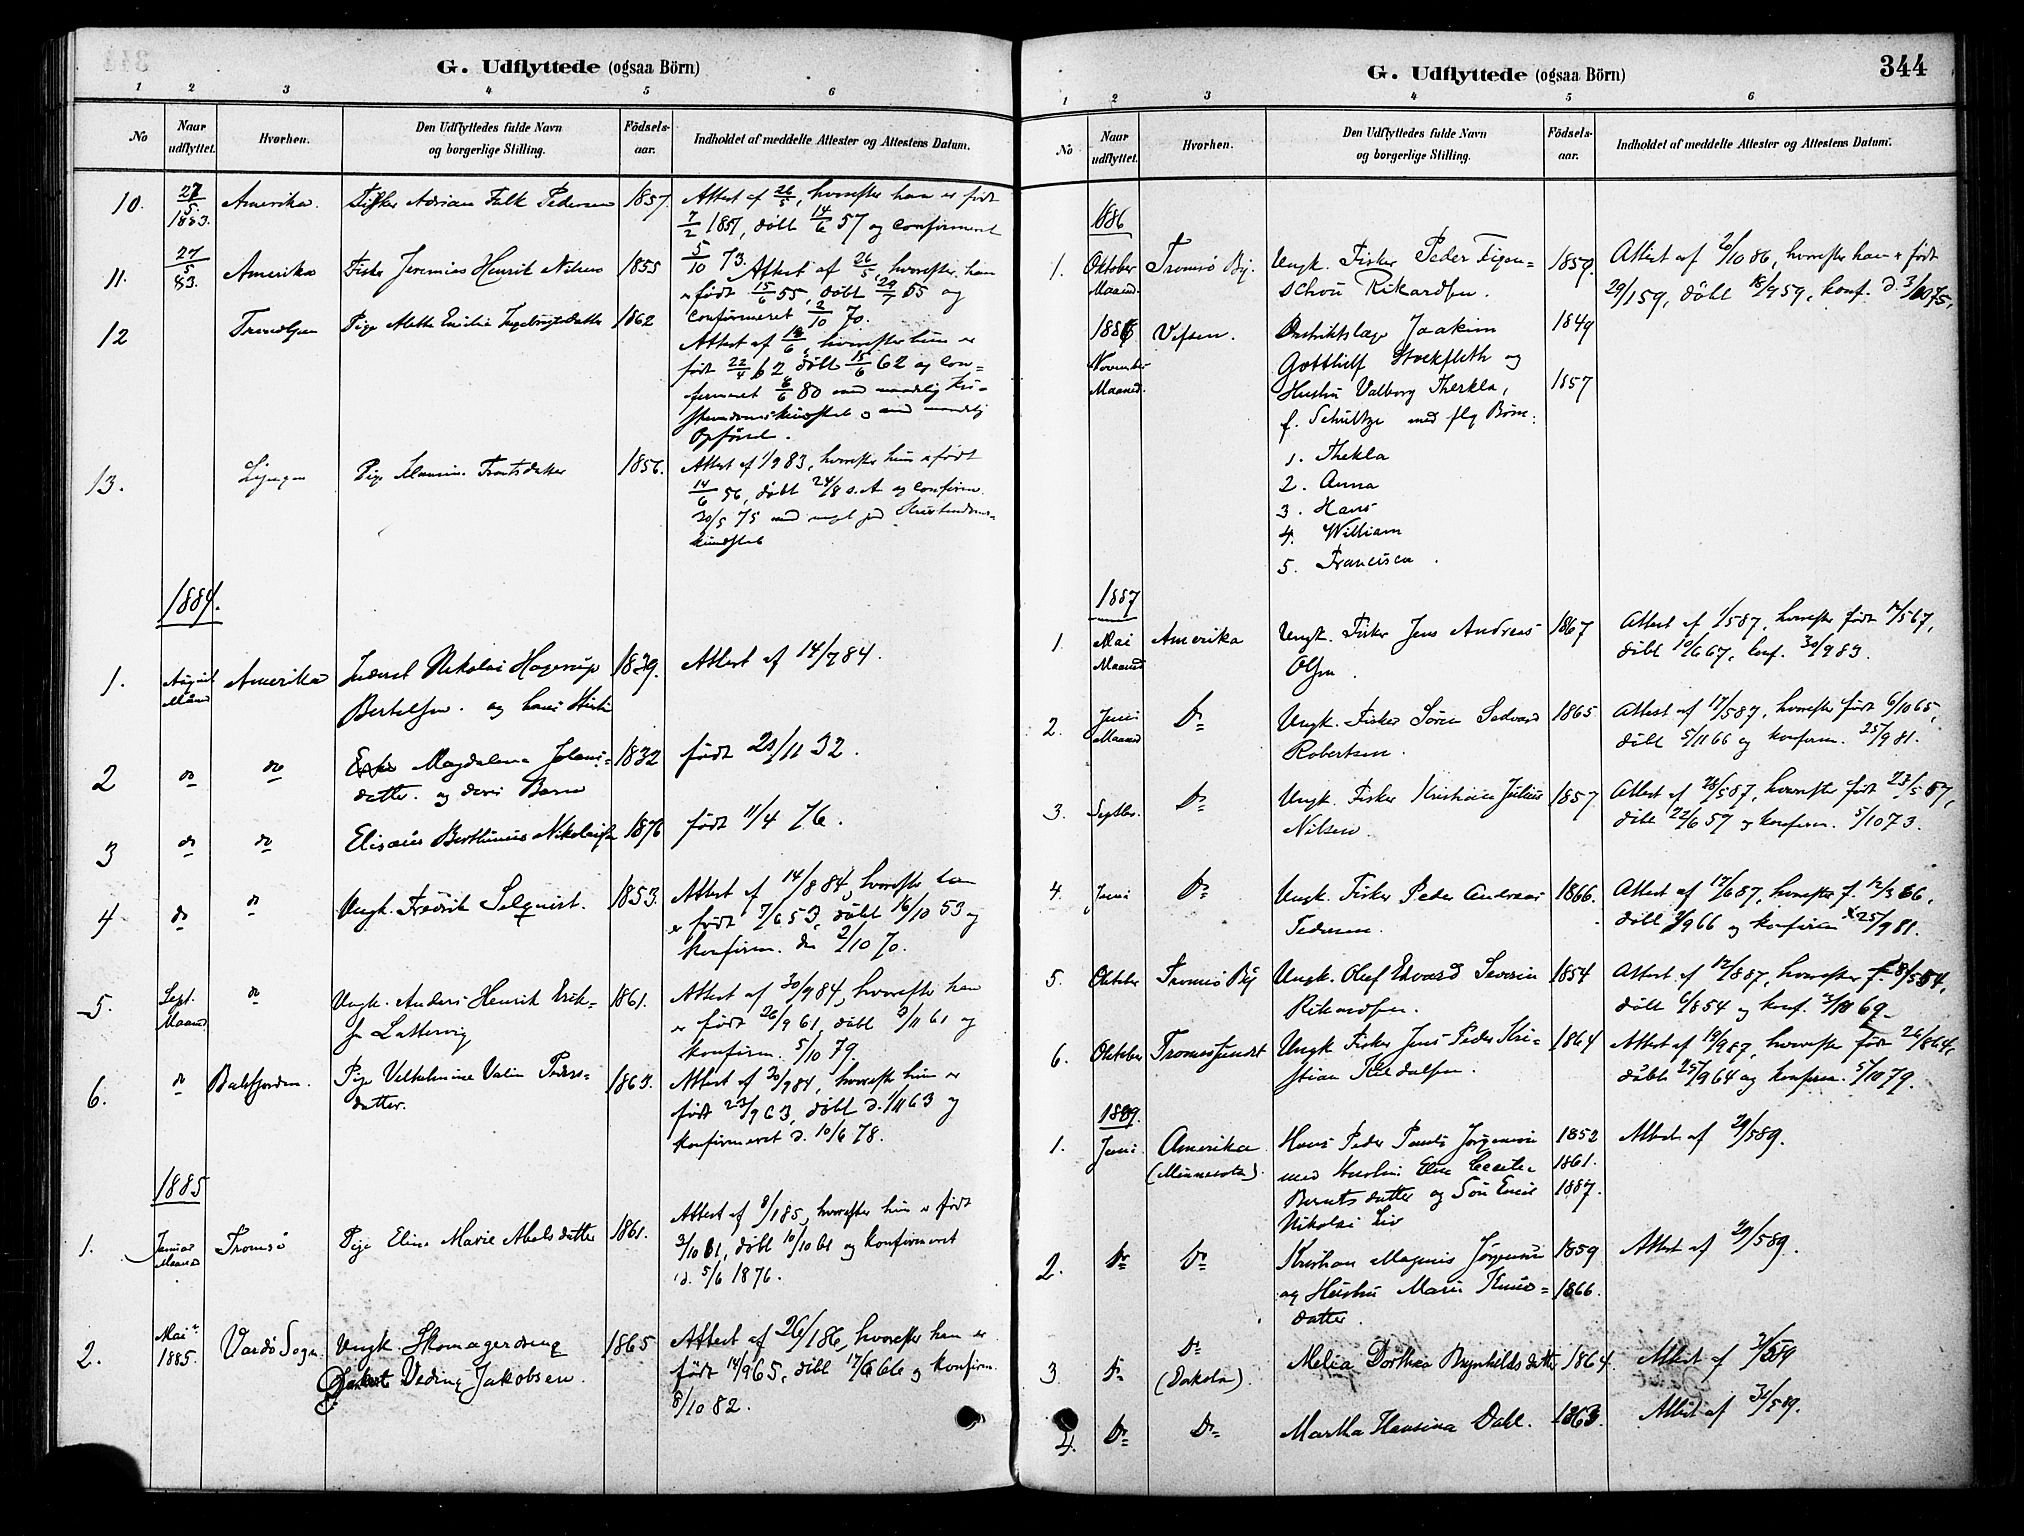 G. Udflyttede (ogsaa Börn)
1 2 3 4 5 6
No
Naar udflyttet.
Hvorhen.
Den Udflyttedes fulde Navn og borgerlige Stilling.
Födsels-aar.
Indholdet af meddelte Attester og Attestens Datum.
10. 27/5 1883. Amerika. Fisker Adrian Falk Pedersen 1857. Attest af 26/5, hvorefter han er født
7/2 1857, døbt 14/6 57 og confirmeret
5/10 73.
11. 27/5 83. Amerika Fisker Jeremias Henrik Nilsen 1855 Attest af 26/5, hvorefter han
er født 15/6 55, døbt 29/7 55 og
confirmeret 2/10 70.
12 Pige Mette Emilie Ingebrigtsdatter 1862
Attest af 18/6, hvorefter hun er
født 22/4 62, døbt 15/6 62 og con=
firmeret 6/6 80 med maadelig Kri=
stendomskundskab og med maadelig
Opførsel.
13. Lyngen Pige 1856. Attest af 1/9 83, hvorefter hun er født
14/6 56, døbt 24/8 s.A. og confirm.
30/5 75 med meget god Kristendoms=
kundskab
1884.
1. August Maaned Amerika Inderst Nikolai Hagerup 1839. Attest af 14/7 84.
Bertelsen. og hans Hustru
2 do do Magdalena Johans= 1832 født 20/11 32.
datter. og deres Barn
3 do do Elisæus Berthinius Nikolaisen 1876 født 11/4 76.
4 do do Ungk. Fredrik Selqvist. 1853. Attest af 14/8 84, hvorefter han
er født 7/6 53, døbt 16/10 53 og
konfirm. den 2/10 70.
5. Sept. Maaned do Ungk. Anders Henrik Erik= 1861. Attest af 30/9 84, hvorefter han
sen Lattervig
er født 26/9 61, døbt 3/11 61 og
konfirm. 5/10 79.
6. do Balsfjorden. Pige Vilhelmine Valin Peders= 1863. Attest af 30/9 84, hvorefter hun er
datter.
født 23/9 63, døbt d. 1/11 63 og
konfirmeret d. 10/6 78.
1885
1. Januar Maaned Tromsø Pige Eline Marie Abelsdatter 1861. Attest af 8/1 85, hvorefter hun er født
3/10 61, døbt 10/10 61 og konfirmeret
d. 5/6 1876.
2. Mai 1885. Vardø Sogn Ungk. Skomagerdreng 1865 Attest af 26/1 86, hvorefter han er
Veding Jakobsen.
født 14/9 65, døbt 17/6 66 og konfirm.
8/10 82.
G. Udflyttede (ogsaa Börn) 344
1 2 3 4 5 6
No
Naar udflyttet.
Hvorhen.
Den Udflyttedes fulde Navn og borgerlige Stilling.
Födsels-aar.
Indholdet af meddelte Attester og Attestens Datum.
1886
1. Oktober Maaned. Tromsö By. Ungk. Fisker Peder Figen= 1859. Attest af 6/10 86, hvorefter han er født
schou Rikardsen.
29/1 59, døbt 18/9 59, konf. d. 3/10 75.
1886 November Maaned. Vefsen. Distriktslæge Joakim 1849
Gotthilf Stockfleth og
Hustru Valborg Therkla, 1857
f. Schültze med flg Børn:
1. Thekla
2. Anna
3. Hans
4. William
5. Francisca.
1887
1. Mai Maaned Amerika Ungk. Fisker Jens Andreas 1867 Attest af 1/5 87, hvorefter født 12/5 67,
Olsen.
døbt 10/6 67, konf. 30/9 83.
2. Juni Maaned Do Ungk. Fisker Søren Sedvard 1865 Attest af 17/5 87, hvorefter født 6/10 65,
Robertsen.
døbt 5/11 66 og konfirm. 25/9 81.
3. Septbr. Do Ungk. Fisker Kristian Julius 1857 Attest af 28/5 87, hvorefter født 23/5 57,
Nilsen.
døbt 22/6 57 og konfirm. 5/10 73.
4. Juni Do Ungk. Fisker Peder Andreas 1866. Attest af 17/6 87, hvorefter f. 12/3 66,
Pedersen.
døbt 2/9 66 og konfirm 25/9 81.
5. Oktober Tromsö By Ungk. Oluf Edvard Severin 1854 Attest af 12/8 87, hvorefter f. 8/5 54,
Rikardsen.
døbt 6/8 54 og konf. 3/10 69.
6. Oktober Tromsösundet Ungk Fisker Jens Peder Kri= 1864 Attest af 19/9 87, hvorefter født 26/8 64,
stian Rildalsen.
døbt 25/9 64 og konfirm. 5/10 79.
1889.
1. Juni Amerika (Minnesota). Hans Peder Jørgensen 1852 Attest af 29/5 89.
med Hustru Elen Cecilie 1861.
Berntsdatter og Søn Emil 1887.
Nikolai Liv
2. Do Do Kristian Magnus Jørgensen 1859 Attest af 29/5 89.
og Hustru Marie Knuds= 1866.
datter.
3. Do Do (Dakota). Melia Dorthea Brynhildsdatter 1864. Attest af 31/5 89
4. Do Do Martha Hansina Dahl. 1863. Attest af 31/5 89.